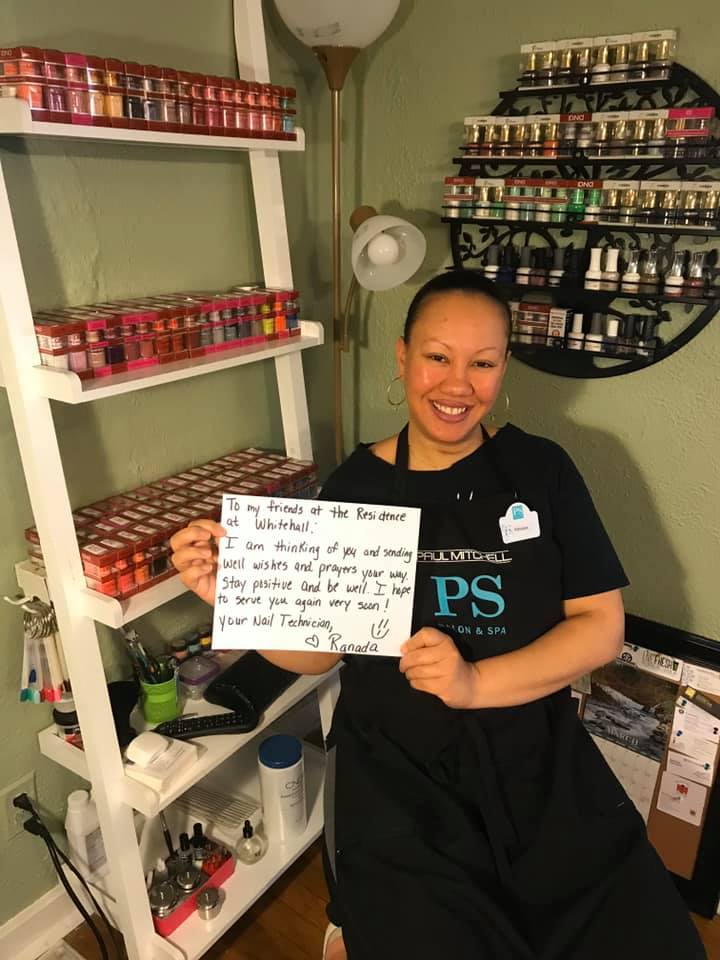 To my friends at the Residence
at Whitehall:
I am thinking of you and sending
well wishes and prayers your way.
Stay positive and be well. I hope
to serve you again very soon!
Your Nail Technician,
Ranada
PS
PAUL MITCHELL
PS
SALON & SPA
DND
DND
MARCH